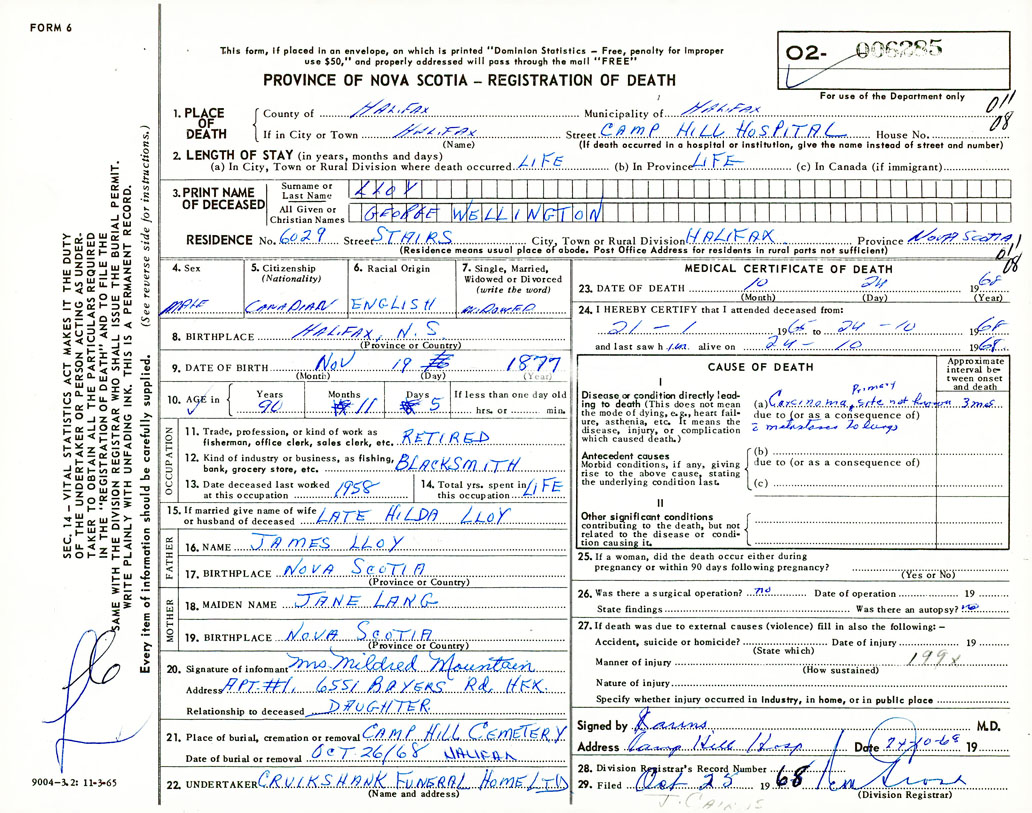 FORM 6
This form, if placed in an envelope, on which is printed "Dominion Statistics – Free, penalty for improper
use $50," and properly addressed will pass through the mail "FREE"
PROVINCE OF NOVA SCOTIA – REGISTRATION OF DEATH
O2- 006285
For use of the Department only
011
08
SEC. 14 – VITAL STATISTICS ACT MAKES IT THE DUTY
OF THE UNDERTAKER OR PERSON ACTING AS UNDER-
TAKER TO OBTAIN ALL THE PARTICULARS REQUIRED
IN THE "REGISTRATION OF DEATH" AND TO FILE THE
SAME WITH THE DIVISION REGISTRAR WHO SHALL ISSUE THE BURIAL PERMIT.
WRITE PLAINLY WITH UNFADING INK. THIS IS A PERMANENT RECORD.
Every item of information should be carefully supplied. (See reverse side for instructions.)
1. PLACE OF DEATH
County of HALIFAX Municipality of HALIFAX
If in City or Town HALIFAX Street CAMP HILL HOSPITAL House No.
(Name) (If death occurred in a hospital or institution, give the name instead of street and number)
2. LENGTH OF STAY (in years, months and days)
(a) In City, Town or Rural Division where death occurred LIFE (b) In Province LIFE (c) In Canada (if immigrant)
3. PRINT NAME OF DECEASED
Surname or Last Name LLOY
All Given or Christian Names GEORGE WELLINGTON
RESIDENCE No. 6029 Street STAIRS City, Town or Rural Division HALIFAX Province NOVA SCOTIA
(Residence means usual place of abode. Post Office Address for residents in rural parts not sufficient)
011
08
4. Sex MALE
5. Citizenship (Nationality) CANADIAN
6. Racial Origin ENGLISH
7. Single, Married, Widowed or Divorced (write the word) WIDOWED
8. BIRTHPLACE HALIFAX, N.S.
(Province or Country)
9. DATE OF BIRTH NOV 19 1877
(Month) (Day) (Year)
10. AGE in Years 90 Months 11 Days 5 If less than one day old
hrs. or min.
OCCUPATION
11. Trade, profession, or kind of work as
fisherman, office clerk, sales clerk, etc. RETIRED
12. Kind of industry or business, as fishing,
bank, grocery store, etc. BLACKSMITH
13. Date deceased last worked
at this occupation 1958
14. Total yrs. spent in
this occupation LIFE
15. If married give name of wife
or husband of deceased LATE HILDA LLOY
FATHER
16. NAME JAMES LLOY
17. BIRTHPLACE NOVA SCOTIA
(Province or Country)
MOTHER
18. MAIDEN NAME JANE LANG
19. BIRTHPLACE NOVA SCOTIA
(Province or Country)
20. Signature of informant Mrs Mildred Mountain
Address APT. #1, 6551 BAYERS Rd, HFX.
Relationship to deceased DAUGHTER
21. Place of burial, cremation or removal CAMP HILL CEMETERY
Date of burial or removal OCT 26/68 HALIFAX
22. UNDERTAKER CRUIKSHANK FUNERAL HOME LTD
(Name and address)
9004–3.2: 11-3-65
MEDICAL CERTIFICATE OF DEATH
23. DATE OF DEATH 10 24 1968
(Month) (Day) (Year)
24. I HEREBY CERTIFY that I attended deceased from:
21 – 1 1965 to 24 – 10 1968
and last saw him alive on 24 – 10 1968
CAUSE OF DEATH
Approximate interval between onset and death
I
Disease or condition directly leading
to death (This does not mean
the mode of dying, e.g., heart failure,
asthenia, etc. It means the
disease, injury, or complication
which caused death.)
(a) Carcinoma, Primary site not known 3 mos
due to (or as a consequence of)
c̄ metastases to lungs
Antecedent causes
Morbid conditions, if any, giving
rise to the above cause, stating
the underlying condition last.
(b)
due to (or as a consequence of)
(c)
II
Other significant conditions
contributing to the death, but not
related to the disease or condition
causing it.
25. If a woman, did the death occur either during
pregnancy or within 90 days following pregnancy?
(Yes or No)
26. Was there a surgical operation? no Date of operation 19
State findings Was there an autopsy? no
27. If death was due to external causes (violence) fill in also the following: –
Accident, suicide or homicide? Date of injury 19
(State which)
Manner of injury 199x
(How sustained)
Nature of injury
Specify whether injury occurred in Industry, in home, or in public place
Signed by M.D.
Address Camp Hill Hosp Date 24-10-68 19
28. Division Registrar's Record Number
29. Filed Oct 25 1968
(Division Registrar)